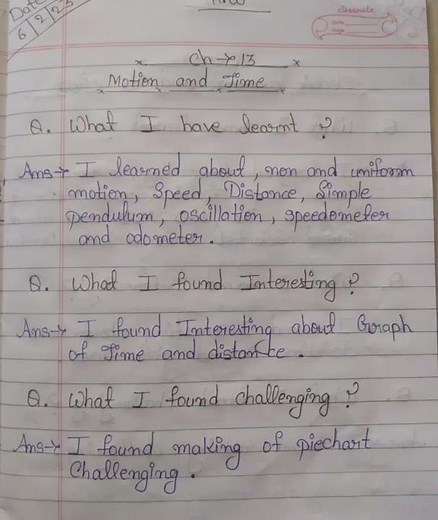 Date
6/2/23
H.W
classmate
Date
Page
Ch → 13
Motion and Time
Q. What I have learnt ?
Ans→ I learned about, non and uniform
motion, Speed, Distance, Simple
pendulum, oscillation, speedometer
and odometer.
Q. What I found Interesting ?
Ans→ I found Interesting about Graph
of Time and distance.
Q. What I found challenging ?
Ans→ I found making of piechart
Challenging.